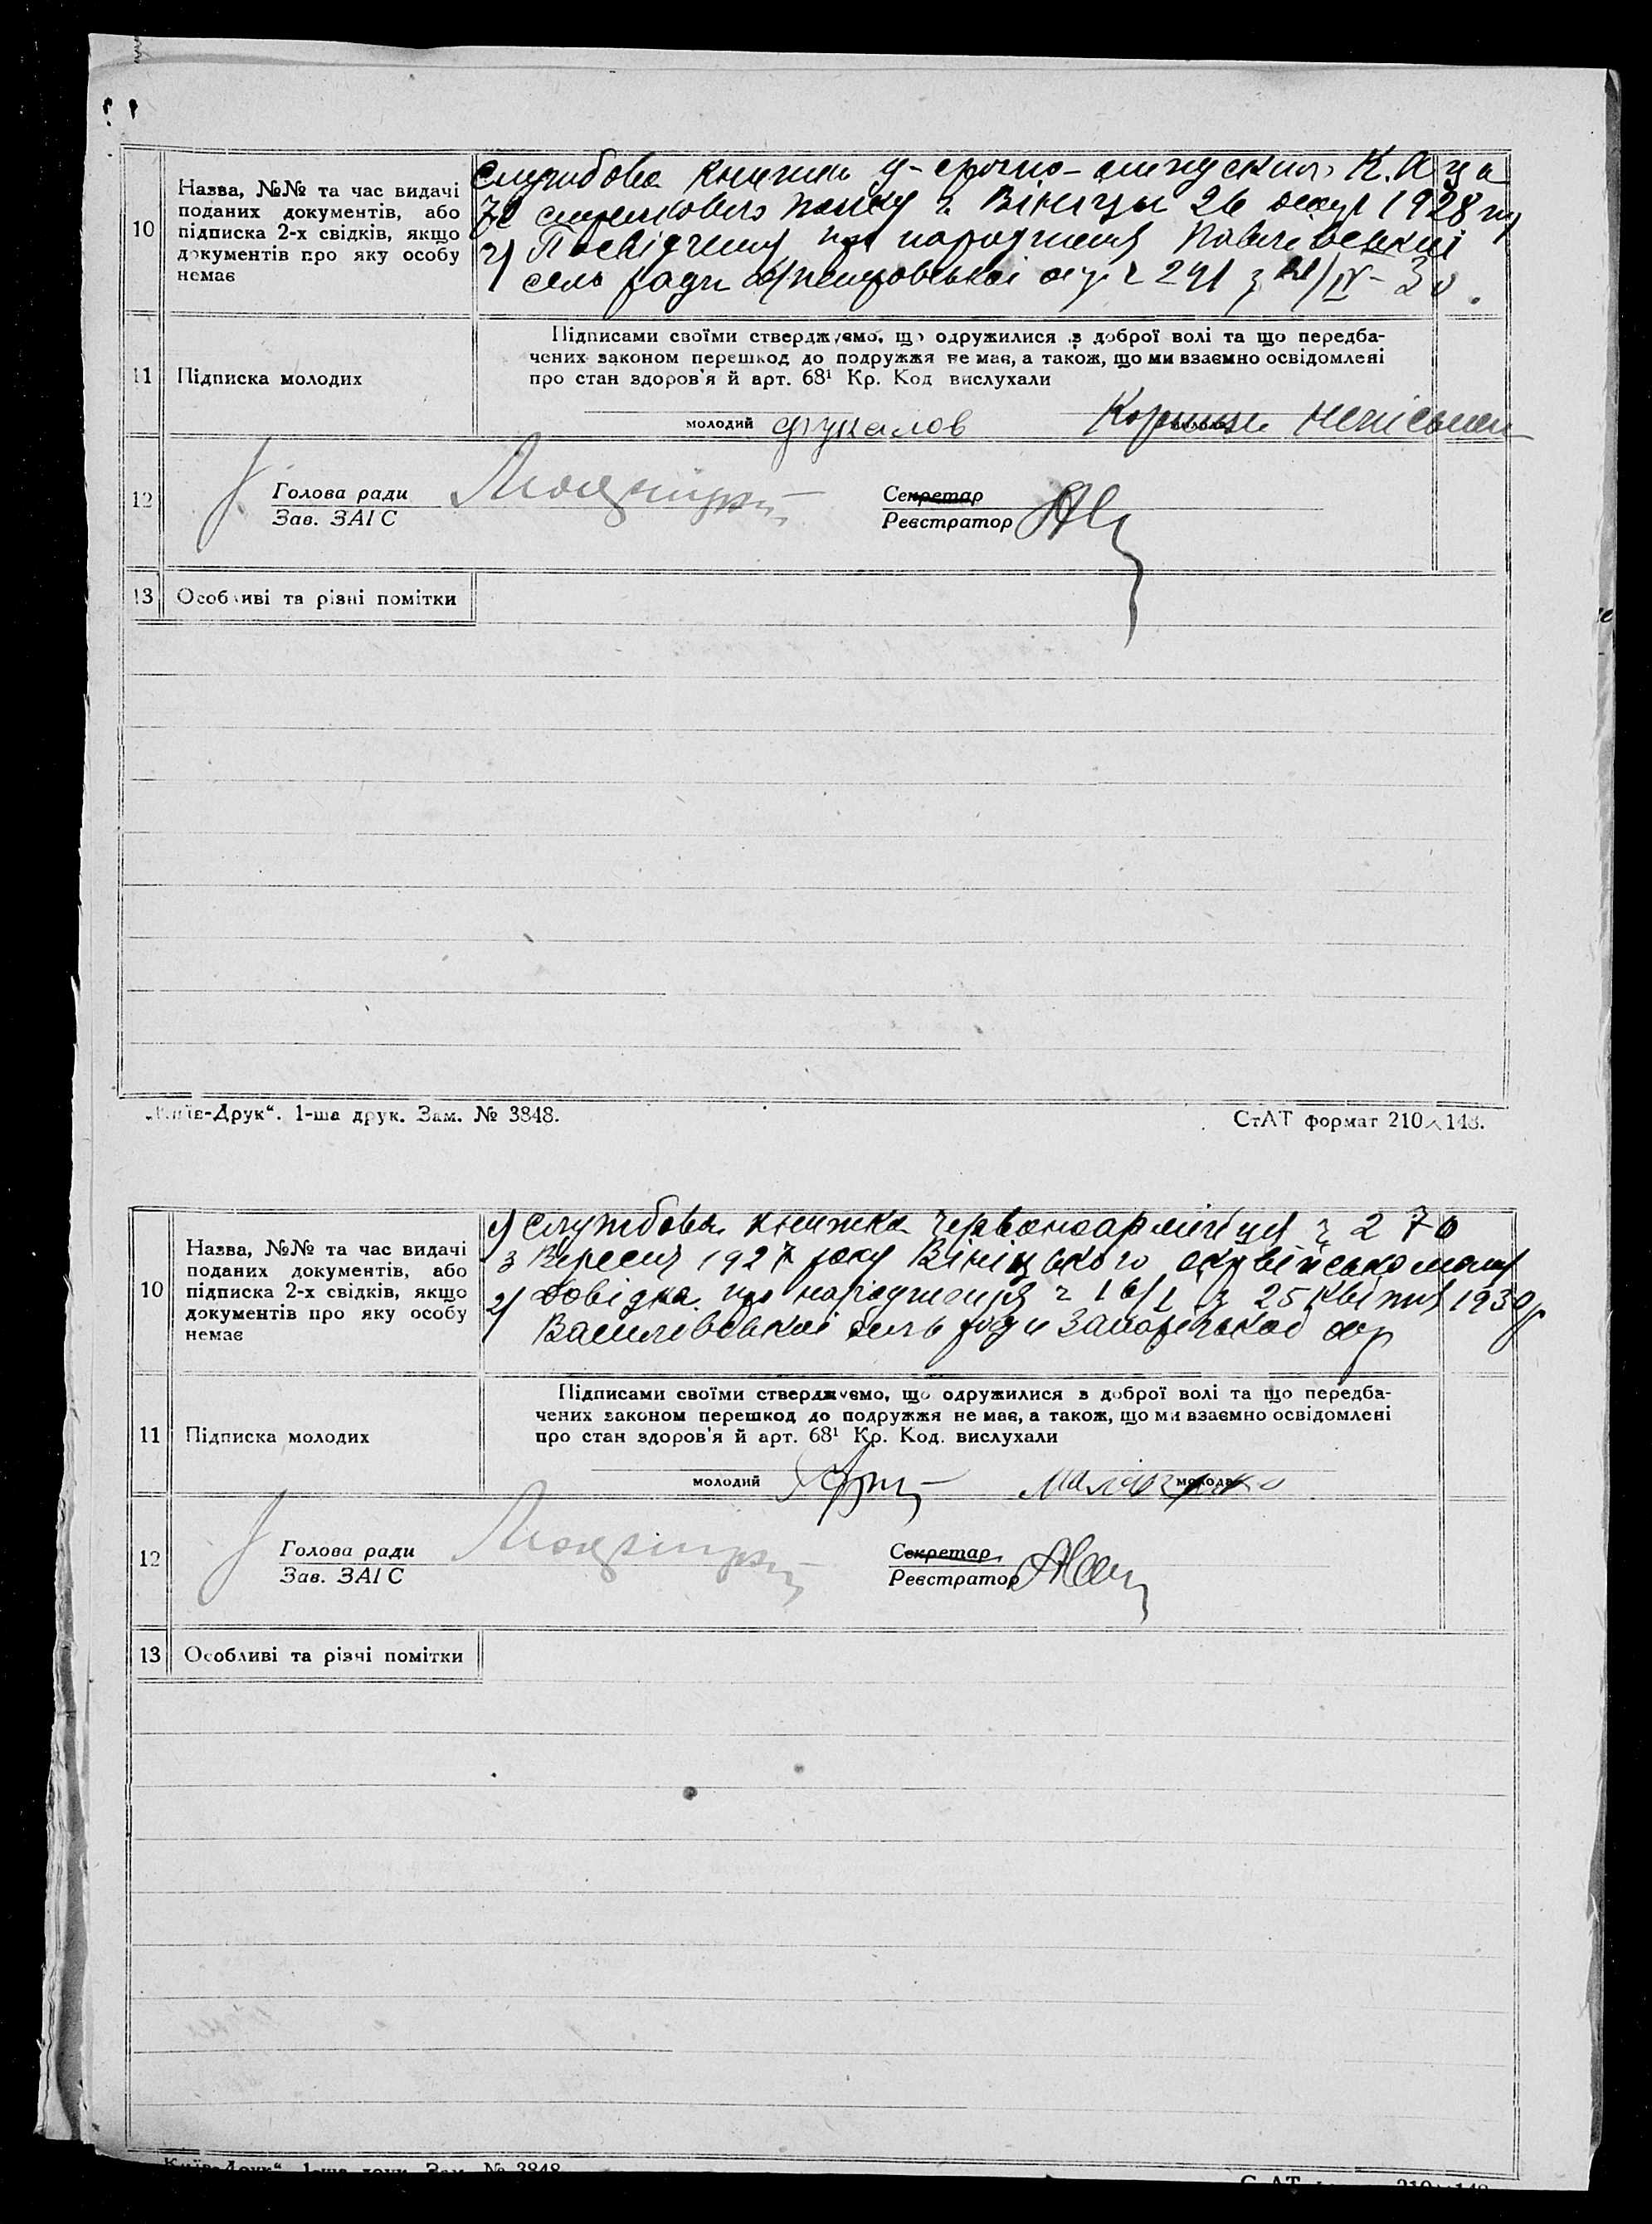 10
Назва, №№ та час видачі
поданих документів, або
підписка 2-х свідків, якщо
документів про яку особу
немає
Службова книжки К.А
70 полку Вініцы 26 1928
2) Посвідчення про народження Павлівської
сель ради 291 з /IV-30.
11
Підписка молодих
Підписами своїми стверджуємо, що одружилися з доброї волі та що передба-
чених законом перешкод до подружжя не має, а також, що ми взаємно освідомлені
про стан здоров'я й арт. 68¹ Кр. Код вислухали
молодий Фукалов молода
12
Голова ради
Зав. ЗАГС
Секретар
Реєстратор
13 Особливі та різні помітки
„Київ-Друк“. 1-ша друк. Зам. № 3848.
СтАТ формат 210×148.
10
Назва, №№ та час видачі
поданих документів, або
підписка 2-х свідків, якщо
документів про яку особу
немає
1) Службова книжка червоноармійця ч 270
з Вересня 1927 року Вініцького окрвійськомату
2) Довідка про народження ч 16/1 з 25 квітня 1930р
Василівської сель ради Запорізької окр
11
Підписка молодих
Підписами своїми стверджуємо, що одружилися з доброї волі та що передба-
чених законом перешкод до подружжя не має, а також, що ми взаємно освідомлені
про стан здоров'я й арт. 68¹ Кр. Код. вислухали
молодий молода
12
Голова ради
Зав. ЗАГС
Секретар
Реєстратор
13 Особливі та різні помітки
Київ-Друк“. 1-ша друк. Зам. № 3848